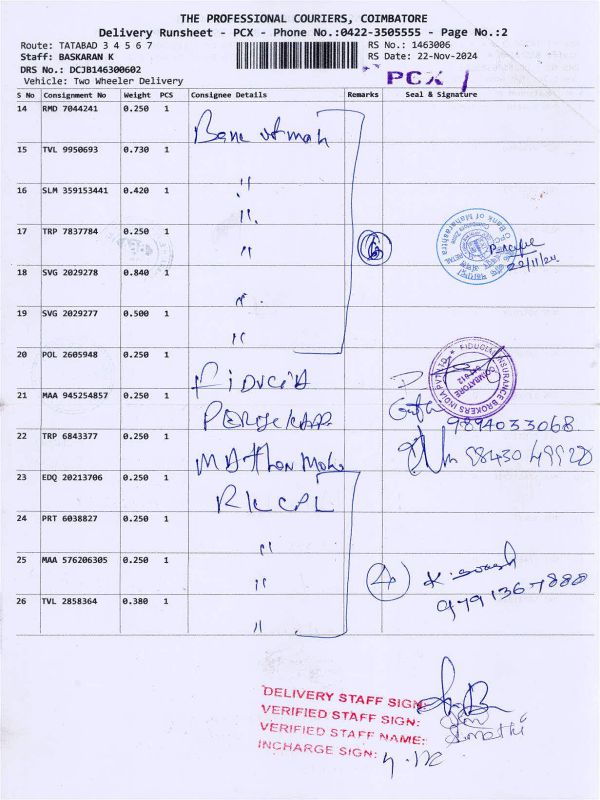 THE PROFESSIONAL COURIERS, COIMBATORE
Delivery Runsheet - PCX - Phone No.:0422-3505555 - Page No.:2
Route: TATABAD 3 4 5 6 7
RS No.: 1463006
Staff: BASKARAN K
RS Date: 22-Nov-2024
DRS No.: DCJB146300602
Vehicle: Two Wheeler Delivery
PCX
S No Consignment No Weight PCS Consignee Details Remarks Seal & Signature
14 RMD 7044241 0.250 1
15 TVL 9950693 0.730 1 "
16 SLM 359153441 0.420 1 "
17 TRP 7837784 0.250 1 "
18 SVG 2029278 0.840 1 "
19 SVG 2029277 0.500 1 "
6
Bank of Maharashtra
22/11/24
20 POL 2605948 0.250 1
FIDUCIA INSURANCE BROKERS INDIA PVT LTD
COIMBATORE
21 MAA 945254857 0.250 1
9894033068
22 TRP 6843377 0.250 1
98430 49920
23 EDQ 20213706 0.250 1 RKCPL
24 PRT 6038827 0.250 1 "
25 MAA 576206305 0.250 1 "
26 TVL 2858364 0.380 1 "
4
9791367888
DELIVERY STAFF SIGN:
VERIFIED STAFF SIGN:
VERIFIED STAFF NAME:
INCHARGE SIGN: